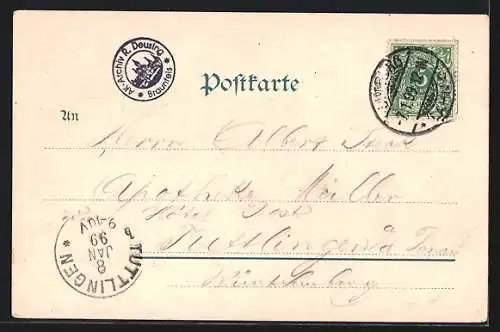 AK-Archiv R. Deusing
* Braunfels *
Postkarte
An
Herrn Albert
Apotheke Müller
Hôtel Post
Tuttlingen a Donau
Württemberg
TUTTLINGEN
8
JAN
99
9-10V